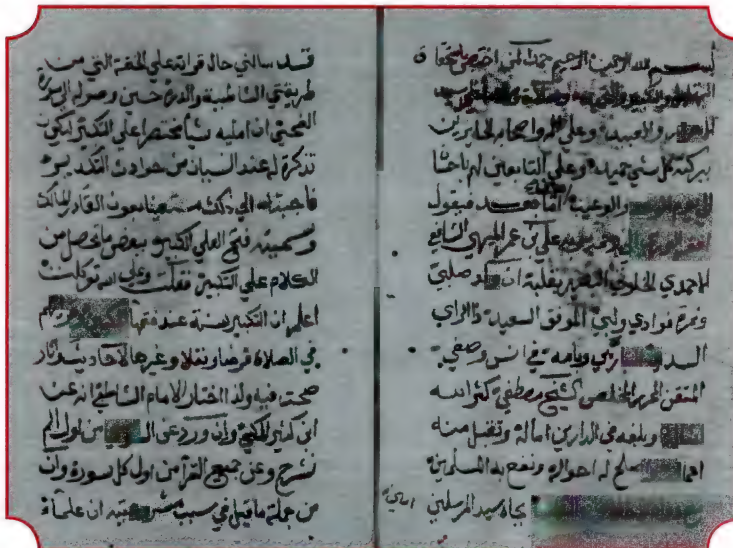 بسم الله الرحمن الرحيم حمدا لمن اختص
والعبيد وعلي اله واصحابه الحايزين
ببركته كل شي حميد وعلي التابعين لهم
والوعيد اما بعد فيقول
علي بن عمر الميهي الشافعي
الاحمدي الخلوتي البصير بقلبه ان ولد صلبي
وثمرة فوادي ولبي الموفق السعيد ذا الراي
السد في انس وصفي
المتقن المحرر المخلص الشيخ مصطفي كثر الله
وبلغه في الدارين اماله وتقبل منه
اصلح له احواله ونفع به المسلمين
بجاه سيد المرسلين امين
قد سالني حال قراته علي الختمة التي من
طريقتي الشاطبية والدرة حين وصوله الي سورة
الضحي ان امليه شيا مختصرا علي التكبير ليكون
تذكرة له عند النسيان من حوادث التكدير
فاجبته الي ذلك مستعينا بعون القادر المالك
وسميته فتح العلي الكبير ببعض ما تحصل من
الكلام علي التكبير فقلت وعلي الله توكلت
اعلم ان التكبير سنة عند
في الصلاة فرضا ونفلا وغيرها لاحاديث واثار
صحت فيه ولذا اختار الامام الشاطبي انه عن
ابن كثير المكي وان ورد عن من اول الم
نشرح وعن جميع القرآ من اول كل سورة وان
من جملة ما قيل في سبب ان علماء